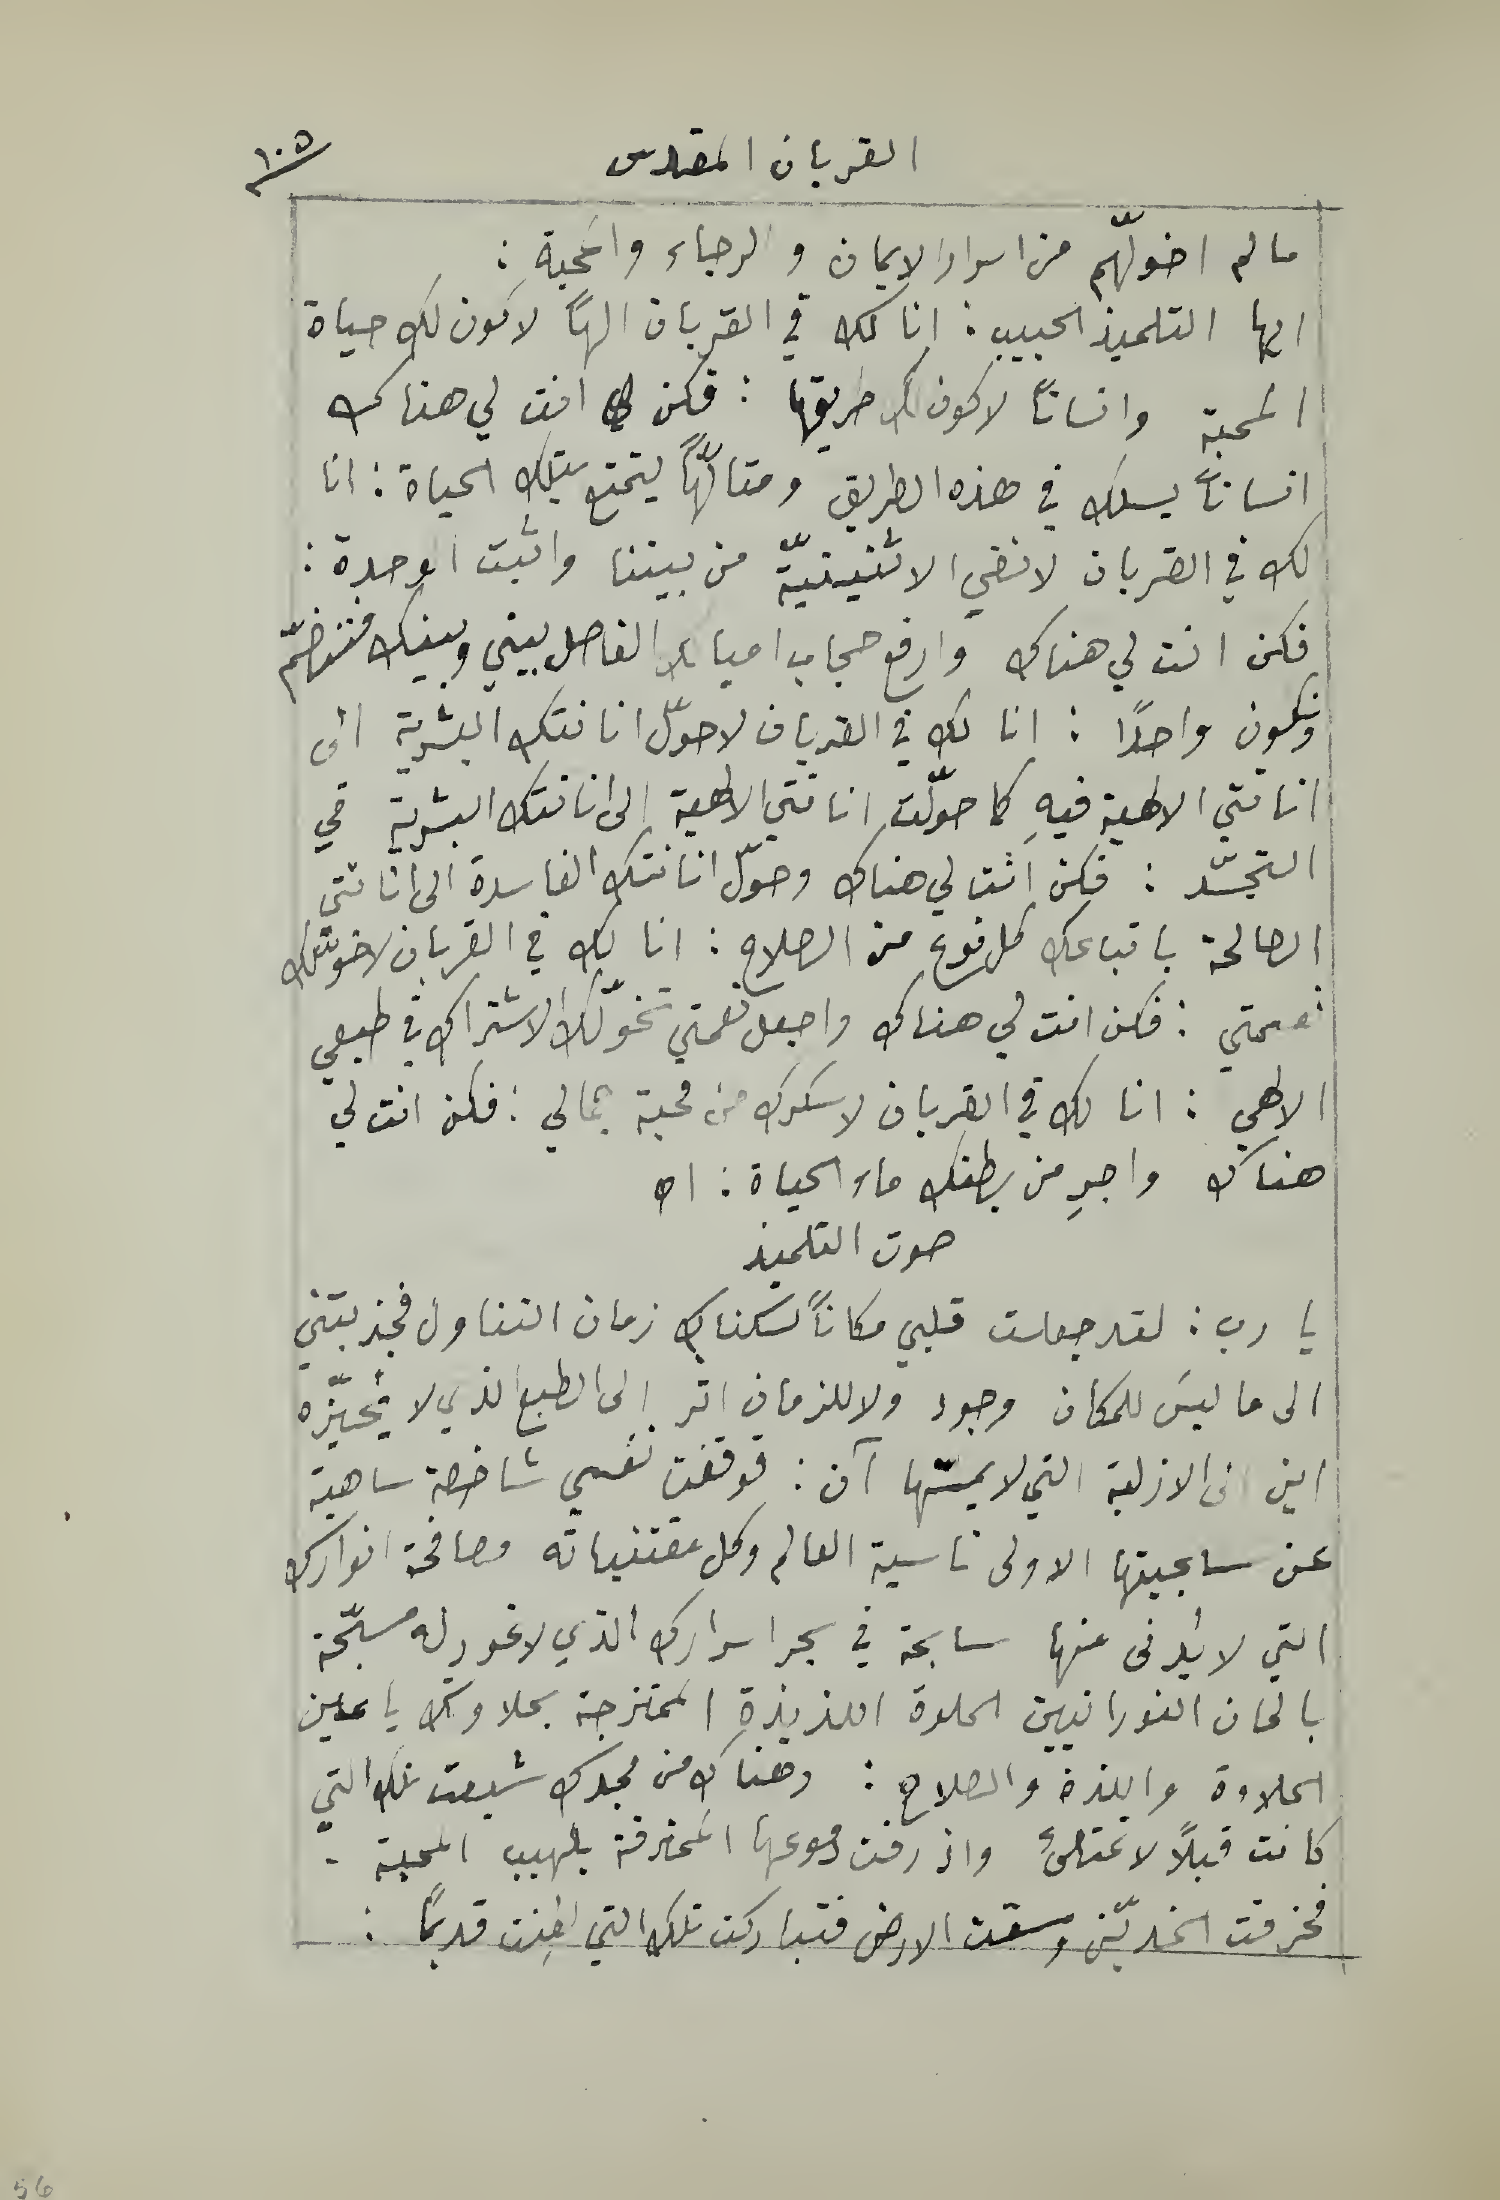 القربان المقدس
١٠٥
ما لم اخولّهم من اسرار الايمان و الرجاء والمحبة :
ايها التلميذ الحبيب : انا لك في القربان الهًا لاكون لك حياة
المحبة وانسانًا لاكون لك طريقها : فكن انت لي هناك
انسانًا يسلك في هذه الطريق ومتالّهًا ليتمتع بتلك الحياة : انا
لك في القربان لانفي الاثنينيّة من بيننا واثبت الوحدة :
فكن انت لي هناك وارفع حجاب اميالك الفاصل بيني وبينك فننضمّ
ونكون واحدًا : انا لك في القربان لاحوّل انانتك البشرية الى
انانتي الالهية فيهِ كما حوّلت انانتي الالهية الى انانتك البشرية في
التجسّد : فكن انت لي هناك وحوّل انانتك الفاسدة الى انانتي
الصالحة باتباعك كل نوع من الصلاح : انا لك في القربان لاخولك
نعمتي : فكن انت لي هناك واجعل نعمتي تخوّلك الاشتراك في طبعي
الالهي : انا لك في القربان لاسكرك من محبة جمالي : فكن انت لي
هناك واجرِ من بطنك ماء الحياة : اه
صوت التلميذ
يا رب : لقد جعلت قلبي مكانًا لسكناك زمان التناول فجذبتني
الى ما ليسَ للمكان وجود ولا للزمان اثر الى الطبع الذي لا يُحيّزه
اين الى الازلية التي لا يمسّها آن : فوقفت نفسي شاخصة ساهية
عن سجيتها الاولى ناسية العالم وكل مقتنياته مصافحة انوارك
التي لا يُدنى منها سابحة في بحر اسرارك الذي لا غور له مسبّحة
بالحان النورانيين الحلوة اللذيذةِ الممتزجة بحلاوتك يا عين
الحلاوة واللذة والصلاح : وهناك من مجدك شبعت تلك التي
كانت قبلًا لا تمتلئُ واذ رفت دموعها المحترقة بلهيب المحبة -
فخرقت الخديّن وسقت الارض فتباركت تلك التي لُعِنت قديمًا :
56